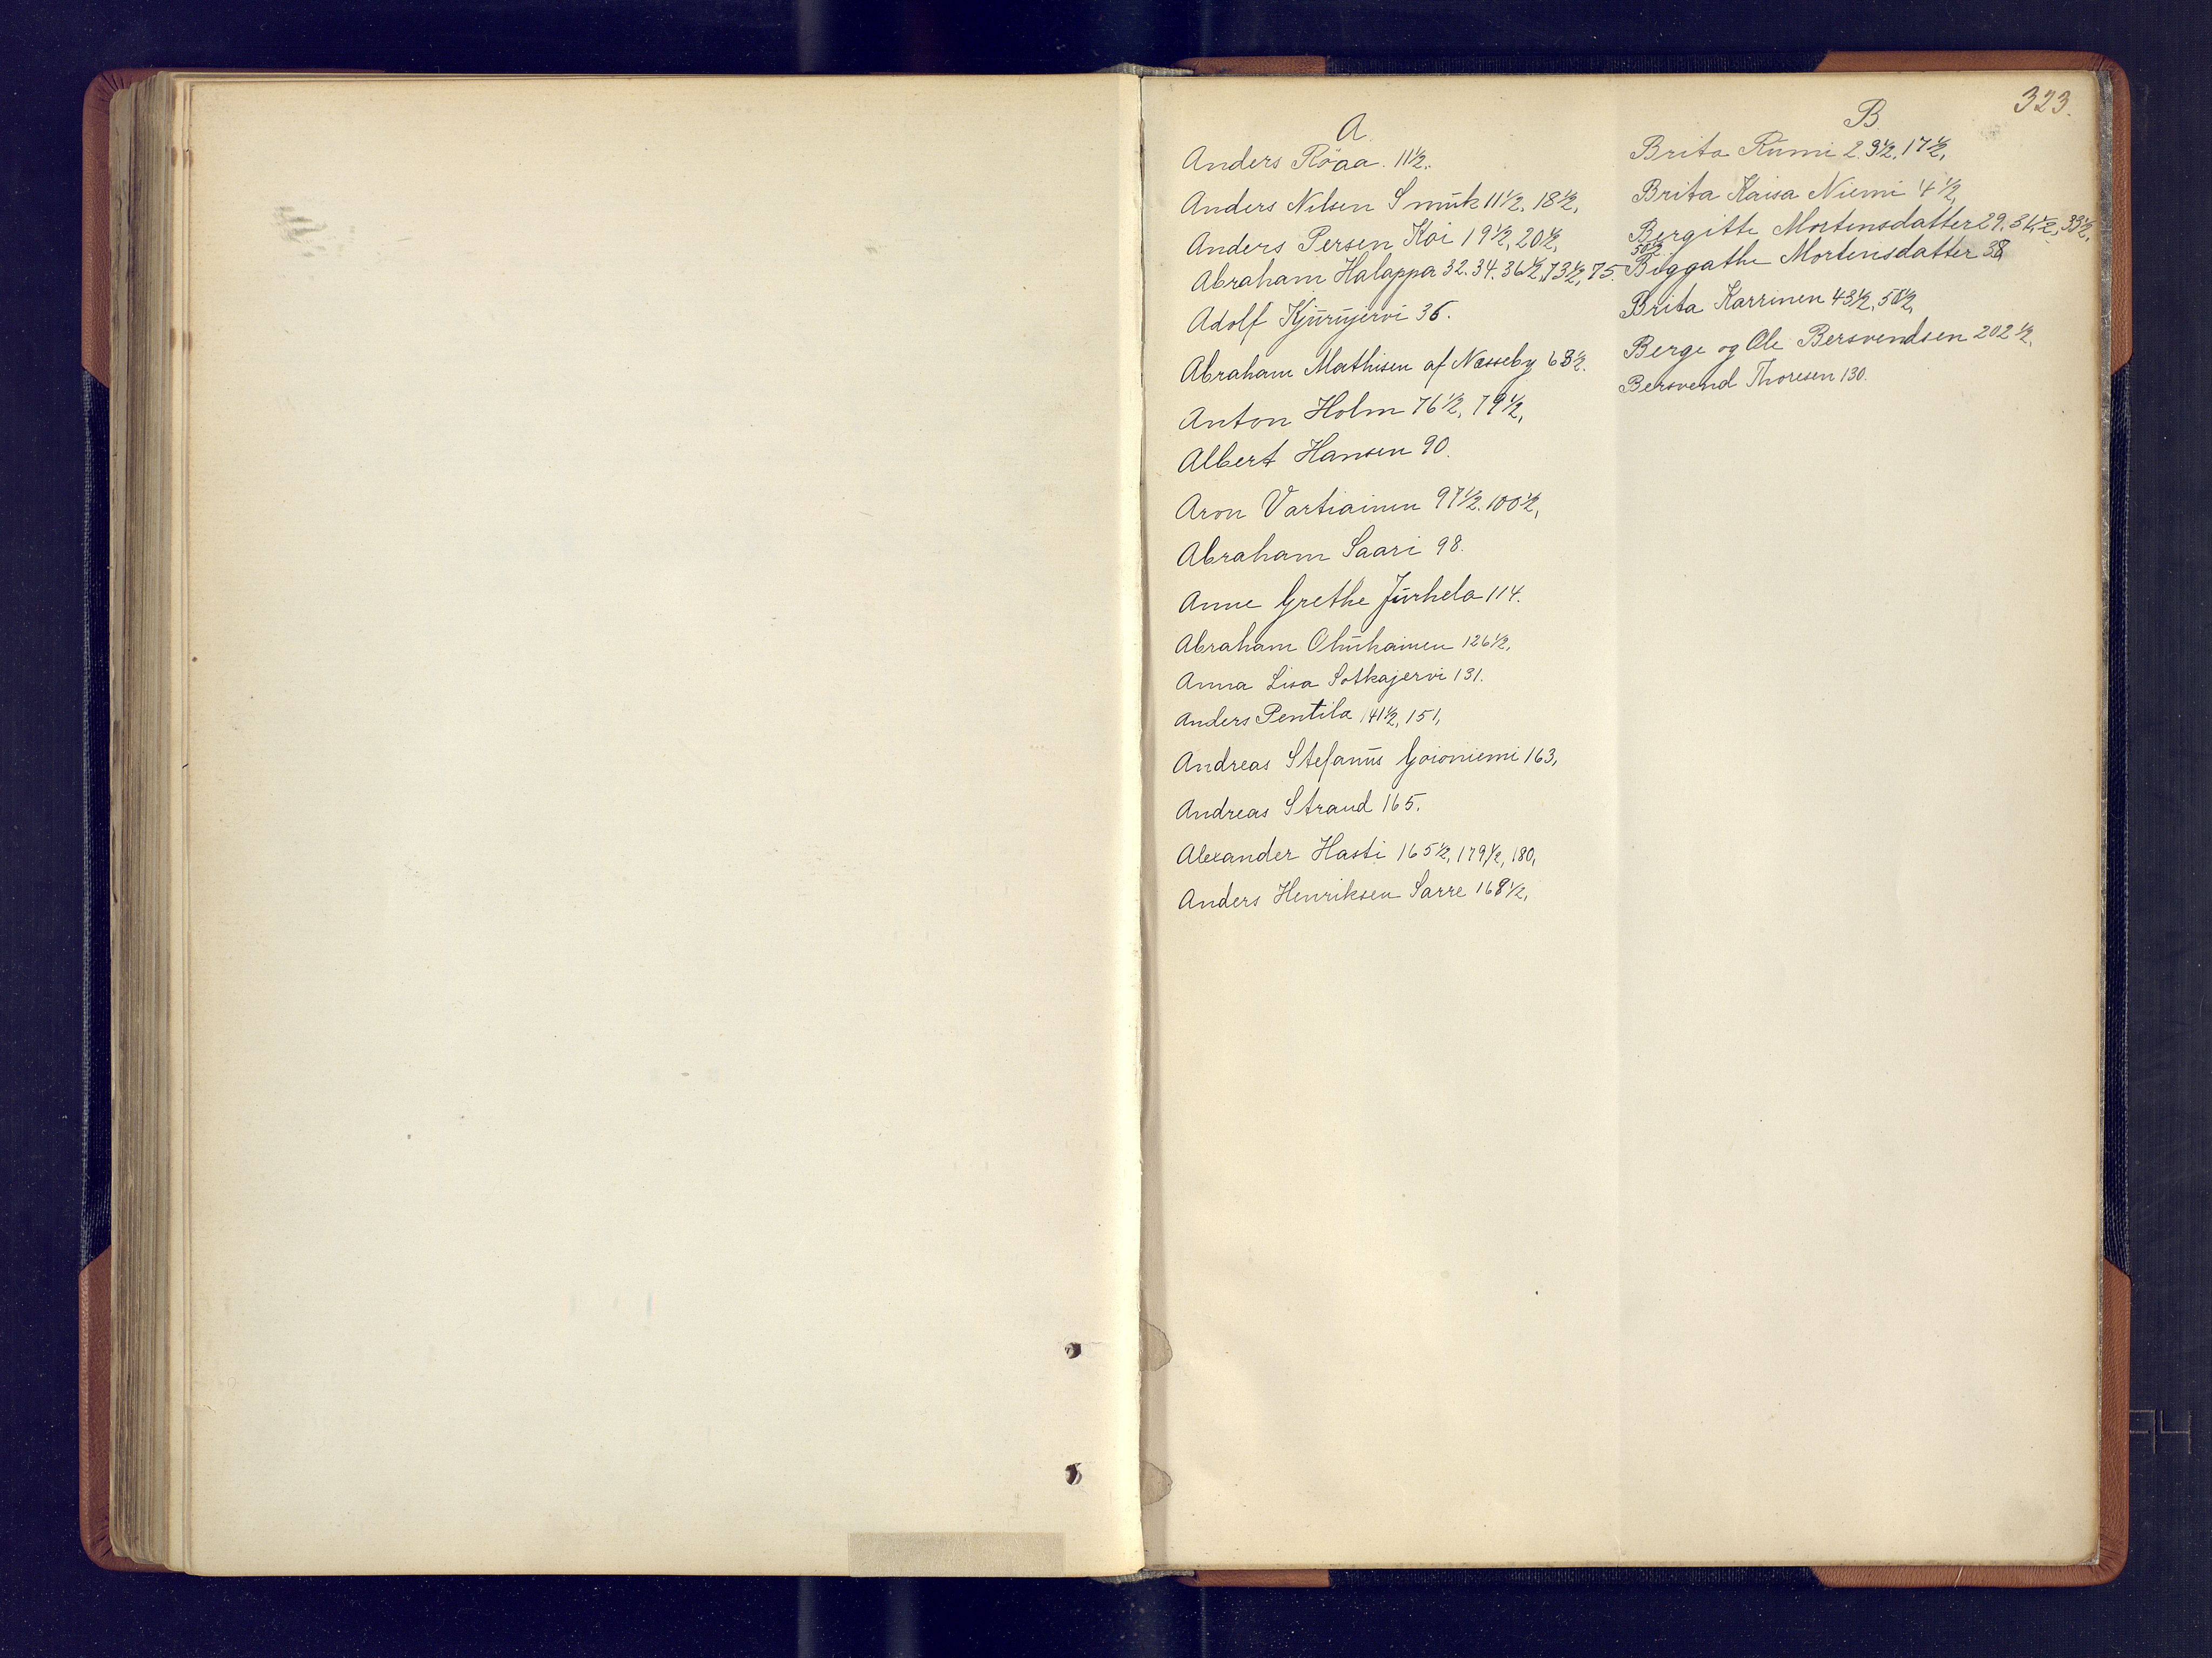 323.
A
Anders Röaa. 11½.
Anders Nilsen Smuk 11½, 18½,
Anders Persen Koi 19½, 20½,
Abraham Halappa 32. 34. 36½, 73½, 75.
Adolf Kjurujervi 36.
Abraham Mathisen af Næsseby 63½.
Anton Holm 76½, 79½,
Albert Hansen 90.
Aron Vartiainen 97½. 100½,
Abraham Saari 98.
Anne Grethe Jurhela 114.
Abraham 126½,
Anna Lisa Sotkajervi 131.
Anders Pentila 141½, 151,
Andreas Stefanus Goioniemi 163,
Andreas Strand 165.
Alexander Hasti 165½, 179½, 180,
Anders Henriksen Sarre 168½,
B
Brita Rumi 2. 3½. 17½,
Brita Kaisa Niemi 4½,
Bergitte Mortensdatter 29. 31½, 33½,
50½.
Biggathe Mortensdatter 38
Brita Karrinen 43½, 50½,
Berge og Ole Bersvendsen 202½.
Bersvend Thoresen 130.